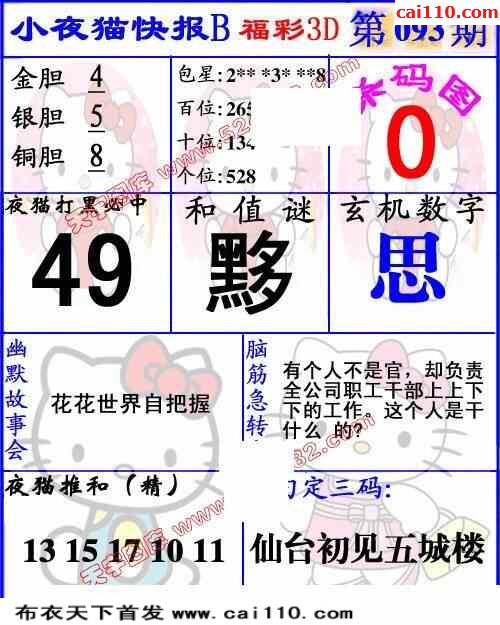 cai110.com
小夜猫快报B 福彩3D 第 093 期
金胆 4
银胆 5
铜胆 8
包星:2** *3* **8
百位:265
十位:134
个位:528
码图
0
夜猫打黑必中
49
和值谜
黟
玄机数字
思
幽默故事会
花花世界自把握
脑筋急转
有个人不是官，却负责
全公司职工干部上上下
下的工作。这个人是干
什么 的?
夜猫推和（精）
13 15 17 10 11
定三码:
仙台初见五城楼
天子图库
天子图库
布衣天下首发 www.cai110.com